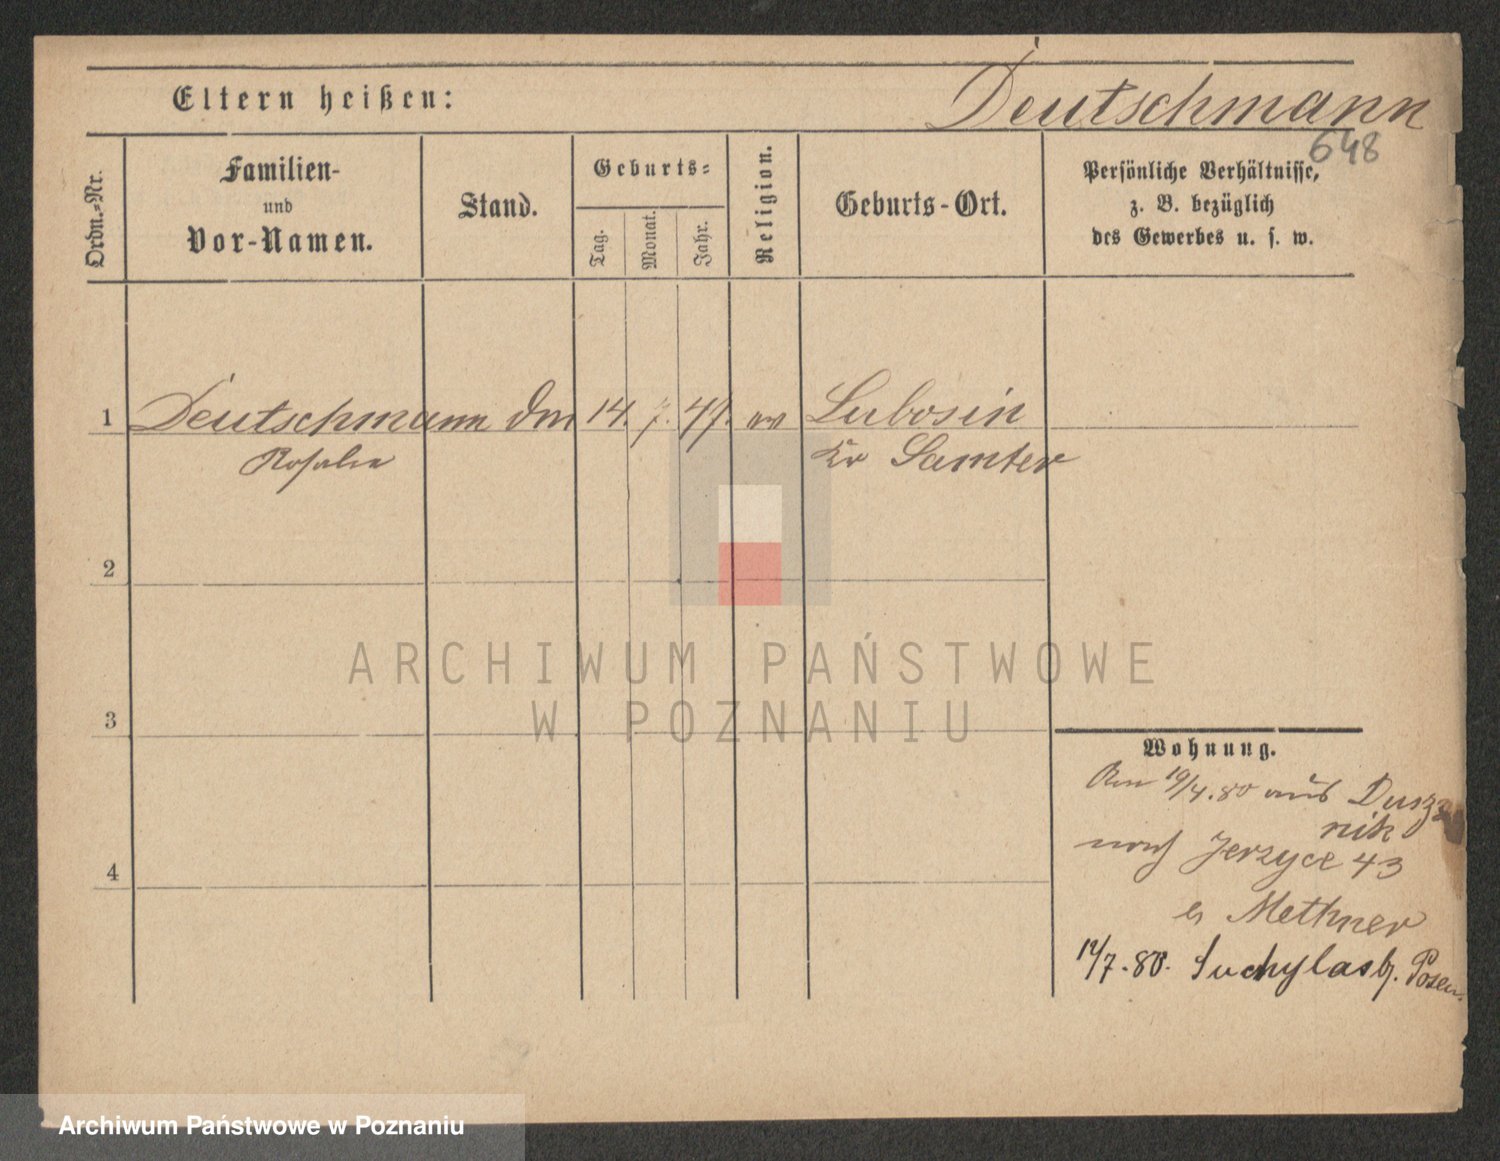 Deutschmann
Eltern heißen:
648
Ordn.-Nr.
Familien-
und
Vor-Namen.
Stand.
Geburts-
Tag.
Monat.
Jahr.
Religion.
Geburts-Ort.
Persönliche Verhältnisse,
z. B. bezüglich
des Gewerbes u. s. w.
1 Deutschmann 14. 7. 47. ev Lubosin
Rosalie Kr Samter
2
3
4
Wohnung.
19/4.80 aus Dusz
nik
nach Jerzyce 43
Methner
12/7.80. Suchylas b. Posen.
ARCHIWUM PAŃSTWOWE
W POZNANIU
Archiwum Państwowe w Poznaniu